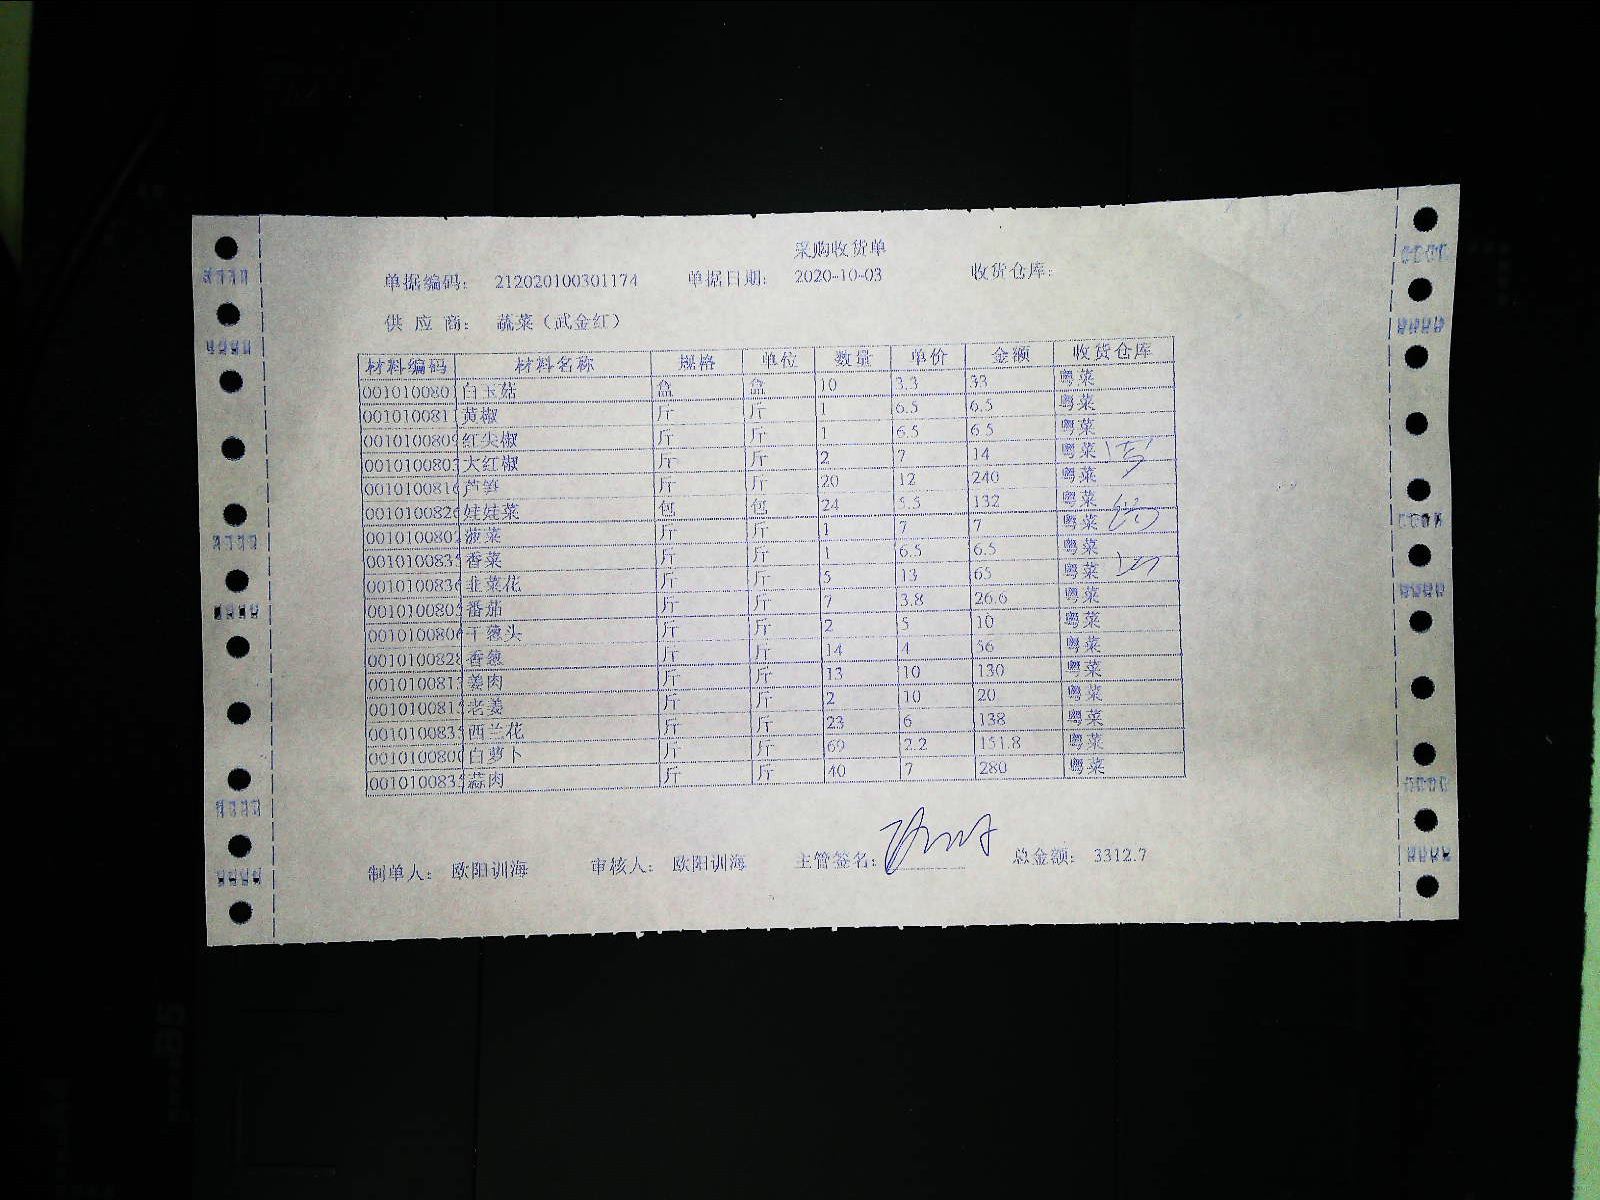 采购收货单
单据编码: 212020100301174 单据日期: 2020-10-03 收货仓库:
供 应 商: 蔬菜（武金红）
材料编码 材料名称 规格 单位 数量 单价 金额 收货仓库
001010080 白玉菇 盒 盒 10 3.3 33 粤菜
001010081 黄椒 斤 斤 1 6.5 6.5 粤菜
0010100809 红尖椒 斤 斤 1 6.5 6.5 粤菜
0010100803 大红椒 斤 斤 2 7 14 粤菜
0010100816 芦笋 斤 斤 20 12 240 粤菜
0010100826 娃娃菜 包 包 24 5.5 132 粤菜
0010100802 菠菜 斤 斤 1 7 7 粤菜
0010100835 香菜 斤 斤 1 6.5 6.5 粤菜
0010100836 韭菜花 斤 斤 5 13 65 粤菜
0010100805 番茄 斤 斤 7 3.8 26.6 粤菜
0010100806 干葱头 斤 斤 2 5 10 粤菜
0010100828 香葱 斤 斤 14 4 56 粤菜
0010100813 姜肉 斤 斤 13 10 130 粤菜
0010100815 老姜 斤 斤 2 10 20 粤菜
0010100835 西兰花 斤 斤 23 6 138 粤菜
0010100800 白萝卜 斤 斤 69 2.2 151.8 粤菜
0010100835 蒜肉 斤 斤 40 7 280 粤菜
制单人: 欧阳训海 审核人: 欧阳训海 主管签名: 总金额: 3312.7